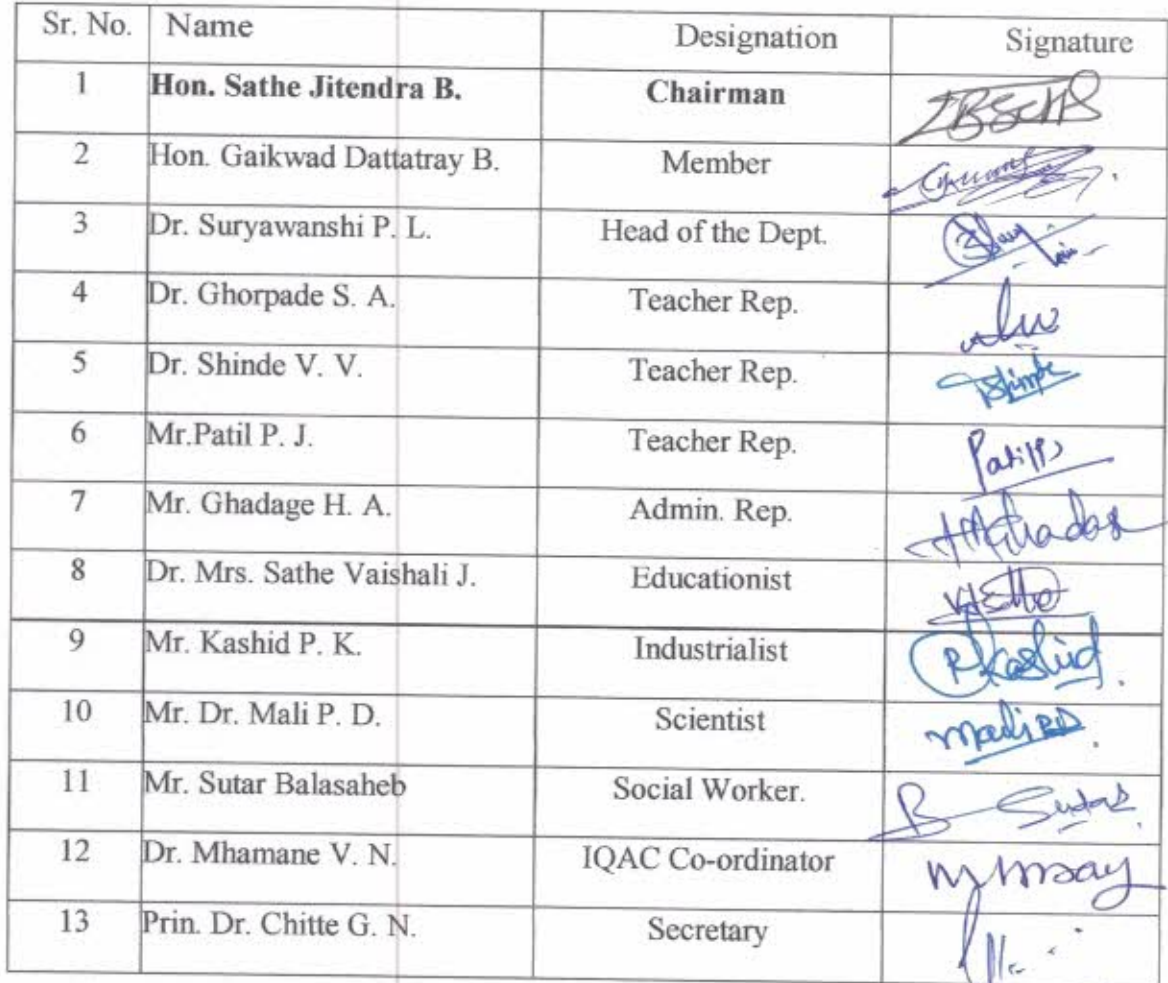 Sr. No. Name Designation Signature
1 Hon. Sathe Jitendra B. Chairman
2 Hon. Gaikwad Dattatray B. Member
3 Dr. Suryawanshi P. L. Head of the Dept.
4 Dr. Ghorpade S. A. Teacher Rep.
5 Dr. Shinde V. V. Teacher Rep. Shinde
6 Mr.Patil P. J. Teacher Rep.
7 Mr. Ghadage H. A. Admin. Rep.
8 Dr. Mrs. Sathe Vaishali J. Educationist
9 Mr. Kashid P. K. Industrialist PKashid.
10 Mr. Dr. Mali P. D. Scientist Mali PD.
11 Mr. Sutar Balasaheb Social Worker. B Sutar
12 Dr. Mhamane V. N. IQAC Co-ordinator
13 Prin. Dr. Chitte G. N. Secretary